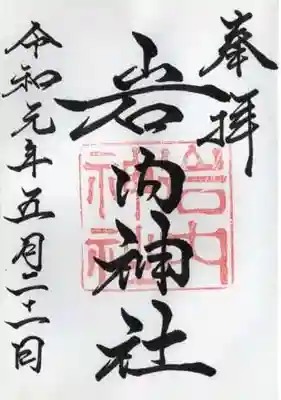 奉拝
岩内神社
岩内
神社
令和元年五月二十一日